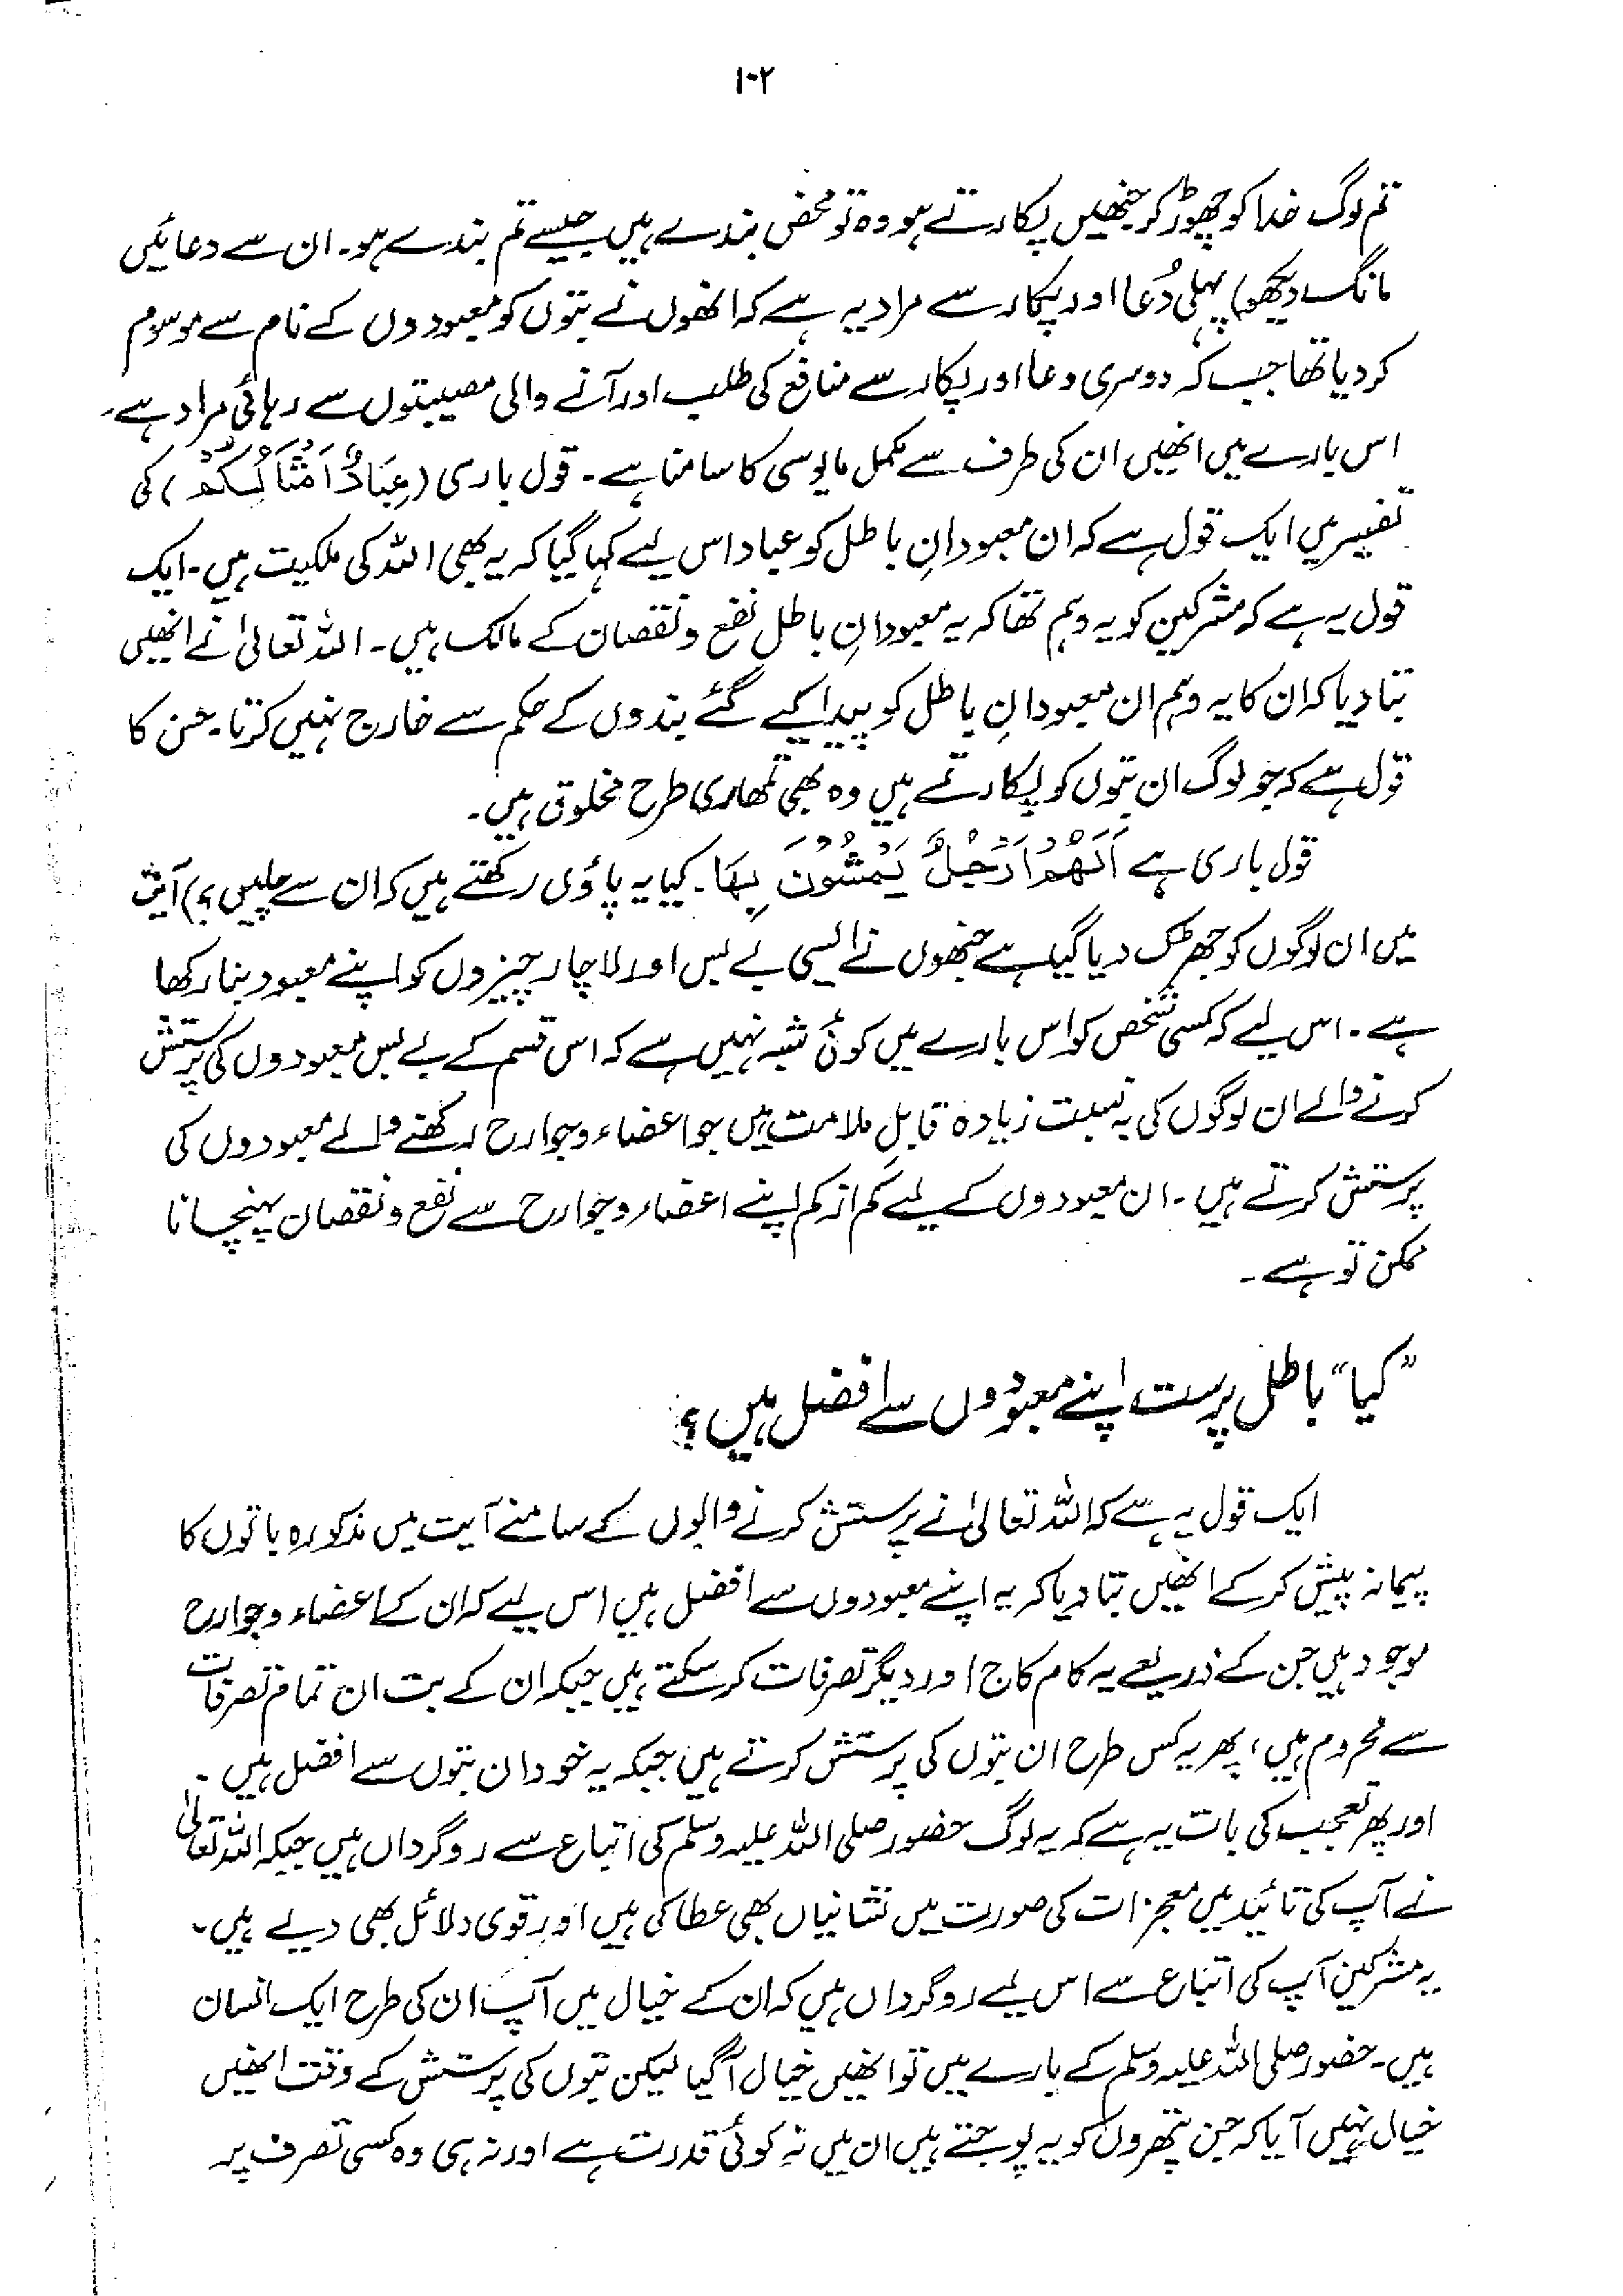 ۱۰۲
تم لوگ خدا کو چھوڑ کر جنھیں پکارتے ہو وہ تو محض بندے ہیں جیسے تم بندے ہو۔ ان سے دعائیں
مانگ دیکھو) پہلی دُعا اور پکار سے مراد یہ ہے کہ انھوں نے بتوں کو معبودوں کے نام سے موسوم
کر دیا تھا جب کہ دوسری دعا اور پکار سے منافع کی طلب اور آنے والی مصیبتوں سے رہائی مراد ہے۔
اس بارے میں انھیں ان کی طرف سے مکمل مایوسی کا سامنا ہے۔ قول باری (عِبَادٌ اَمْثَالُكُمْ) کی
تفسیر میں ایک قول ہے کہ ان معبودانِ باطل کو عباد اس لیے کہا گیا کہ یہ بھی اللہ کی ملکیت ہیں۔ ایک
قول یہ ہے کہ مشرکین کو یہ وہم تھا کہ یہ معبودانِ باطل نفع و نقصان کے مالک ہیں۔ اللہ تعالیٰ نے انھیں
بتا دیا کہ ان کا یہ وہم ان معبودانِ باطل کو پیدا کیے گئے بندوں کے حکم سے خارج نہیں کرتا۔ حسن کا
قول ہے کہ جو لوگ ان بتوں کو پکارتے ہیں وہ بھی تمھاری طرح مخلوق ہیں۔
قول باری ہے اَلَهُمْ اَرْجُلٌ يَمْشُوْنَ بِهَا۔ کیا یہ پاؤں رکھتے ہیں کہ ان سے چلیں؟) آیت
میں ان لوگوں کو جھڑک دیا گیا ہے جنھوں نے ایسی بے بس اور لاچار چیزوں کو اپنے معبود بنا رکھا
ہے۔ اس لیے کہ کسی شخص کو اس بارے میں کوئی شبہ نہیں ہے کہ اس قسم کے بے بس معبودوں کی پرستش
کرنے والے ان لوگوں کی بہ نسبت زیادہ قابلِ ملامت ہیں جو اعضاء و جوارح رکھنے والے معبودوں کی
پرستش کرتے ہیں۔ ان معبودوں کے لیے کم از کم اپنے اعضاء و جوارح سے نفع و نقصان پہنچانا
ممکن تو ہے۔
”کیا“ باطل پرست اپنے معبودوں سے افضل ہیں؟
ایک قول یہ ہے کہ اللہ تعالیٰ نے پرستش کرنے والوں کے سامنے آیت میں مذکورہ باتوں کا
پیمانہ پیش کر کے انھیں بتا دیا کہ یہ اپنے معبودوں سے افضل ہیں اس لیے کہ ان کے اعضاء و جوارح
موجود ہیں جن کے ذریعے یہ کام کاج اور دیگر تصرفات کر سکتے ہیں جبکہ ان کے بت ان تمام تصرفات
سے محروم ہیں، پھر یہ کس طرح ان بتوں کی پرستش کرتے ہیں جبکہ یہ خود ان بتوں سے افضل ہیں۔
اور پھر تعجب کی بات یہ ہے کہ یہ لوگ حضور صلی اللہ علیہ وسلم کی اتباع سے روگرداں ہیں جبکہ اللہ تعالیٰ
نے آپ کی تائید میں معجزات کی صورت میں نشانیاں بھی عطا کی ہیں اور قوی دلائل بھی دیے ہیں۔
یہ مشرکین آپ کی اتباع سے اس لیے روگرداں ہیں کہ ان کے خیال میں آپ ان کی طرح ایک انسان
ہیں۔ حضور صلی اللہ علیہ وسلم کے بارے میں تو انھیں خیال آ گیا لیکن بتوں کی پرستش کے وقت انھیں
خیال نہیں آیا کہ جن پتھروں کو یہ پوجتے ہیں ان میں نہ کوئی قدرت ہے اور نہ ہی وہ کسی تصرف پر